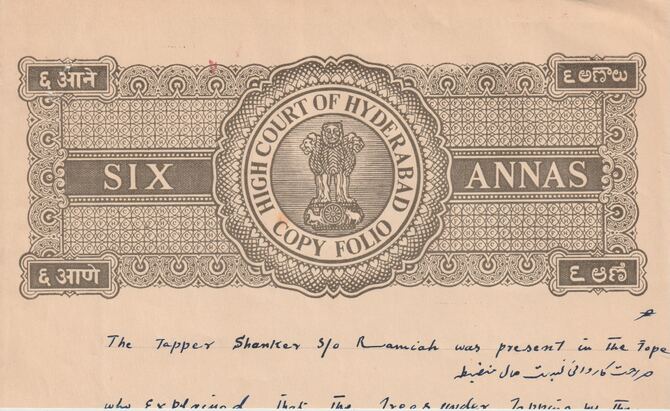 ६ आने
౬ అణాలు
HIGH COURT OF HYDERABAD
SIX
ANNAS
COPY FOLIO
६ आणे
೬ ಆಣೆ
The Tapper Shanker S/o Ramiah was present in the Tope
who explained that the trees under tapping by the